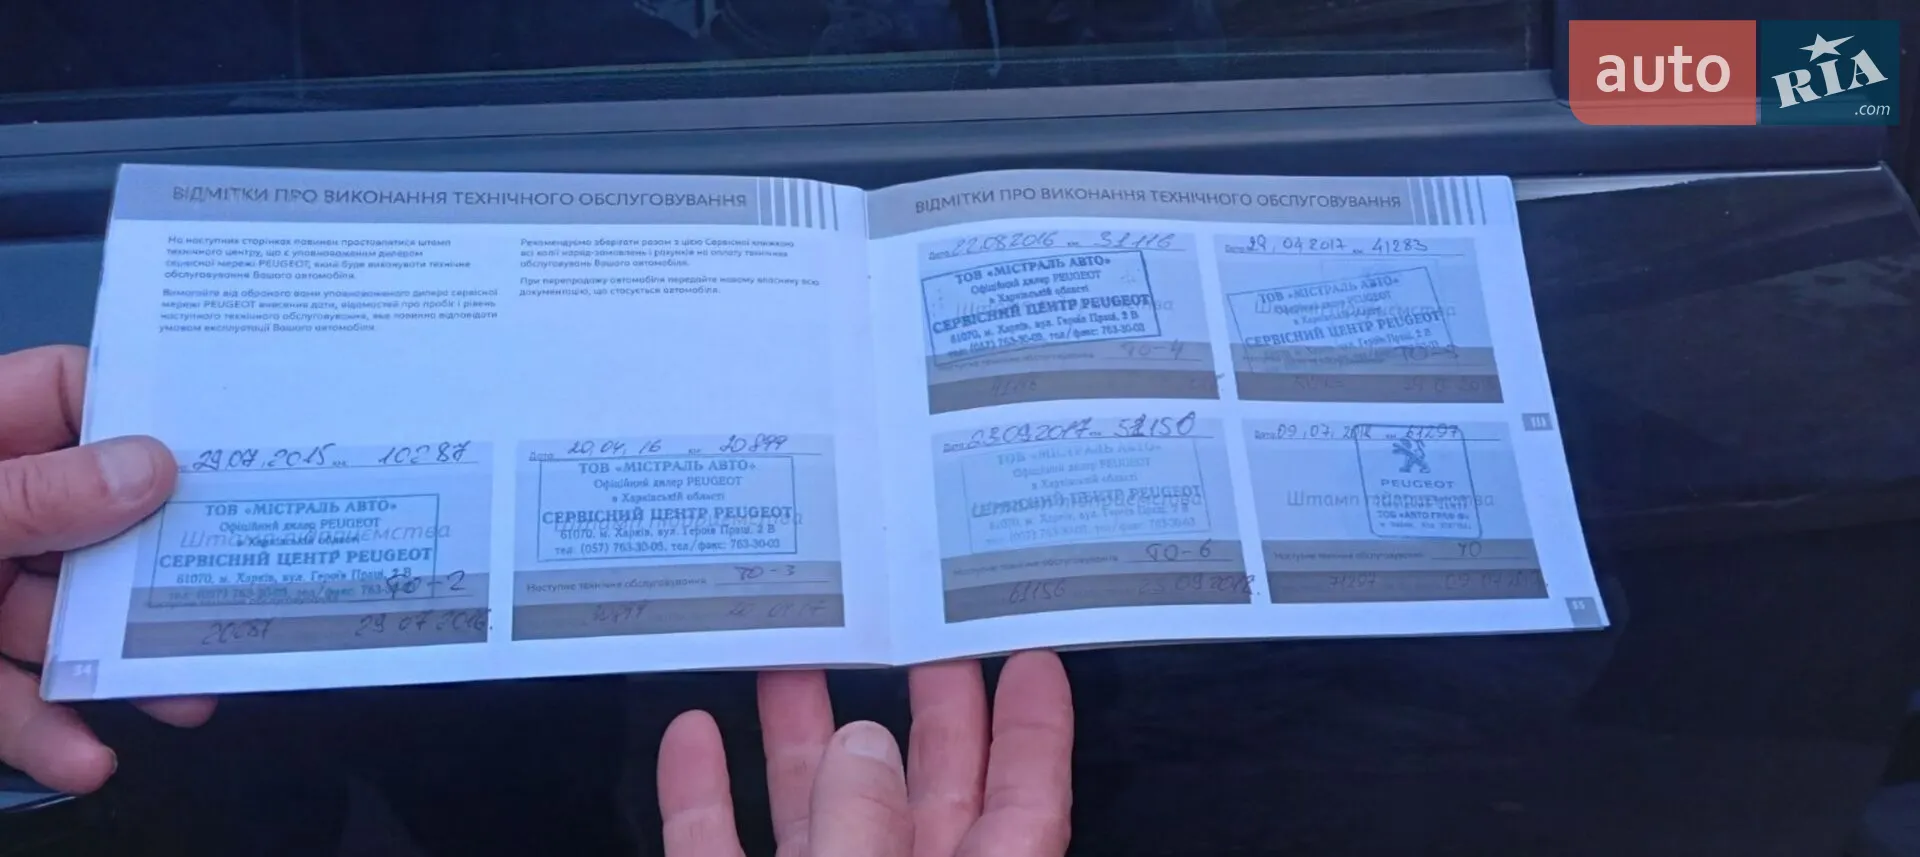 auto
RIA
.com
ВІДМІТКИ ПРО ВИКОНАННЯ ТЕХНІЧНОГО ОБСЛУГОВУВАННЯ
На наступних сторінках повинен проставлятися штамп
технічного центру, що є уповноваженим дилером
сервісної мережі PEUGEOT, який буде виконувати технічне
обслуговування Вашого автомобіля.
Вимагайте від обраного вами уповноваженого дилера сервісної
мережі PEUGEOT внесення дати, відомостей про пробіг і рівень
наступного технічного обслуговування, яке повинно відповідати
умовам експлуатації Вашого автомобіля.
Рекомендуємо зберігати разом з цією Сервісної книжкою
всі копії наряд-замовлень і рахунків на оплату технічних
обслуговувань Вашого автомобіля.
При перепродажу автомобіля передайте новому власнику всю
документацію, що стосується автомобіля.
29.07.2015 км 10287
ТОВ «МІСТРАЛЬ АВТО»
Офіційний дилер PEUGEOT
в Харківській області
Штамп підприємства
СЕРВІСНИЙ ЦЕНТР PEUGEOT
61070, м. Харків, вул. Героїв Праці, 2 В
ТО-2
20287 29.07.2016.
Дата 20.04.16 км 20899
ТОВ «МІСТРАЛЬ АВТО»
Офіційний дилер PEUGEOT
в Харківській області
СЕРВІСНИЙ ЦЕНТР PEUGEOT
61070, м. Харків, вул. Героїв Праці, 2 В
тел. (057) 763-30-05, тел/факс: 763-30-03
Наступне технічне обслуговування ТО-3
34
ВІДМІТКИ ПРО ВИКОНАННЯ ТЕХНІЧНОГО ОБСЛУГОВУВАННЯ
Дата 22.08.2016 км 31116
ТОВ «МІСТРАЛЬ АВТО»
Офіційний дилер PEUGEOT
в Харківській області
СЕРВІСНИЙ ЦЕНТР PEUGEOT
61070, м. Харків, вул. Героїв Праці, 2 В
тел. (057) 763-30-05, тел/факс: 763-30-03
ТО-4
Дата 29.04.2017 км 41283
ТОВ «МІСТРАЛЬ АВТО»
СЕРВІСНИЙ ЦЕНТР PEUGEOT
Дата 23.09.2017 км 51150
ТОВ «МІСТРАЛЬ АВТО»
Офіційний дилер PEUGEOT
в Харківській області
СЕРВІСНИЙ ЦЕНТР PEUGEOT
Наступне технічне обслуговування ТО-6
61156 23.09.2018.
Дата 09.07.2018 км 61297
PEUGEOT
Штамп підприємства
Наступне технічне обслуговування ТО
71297
III
35